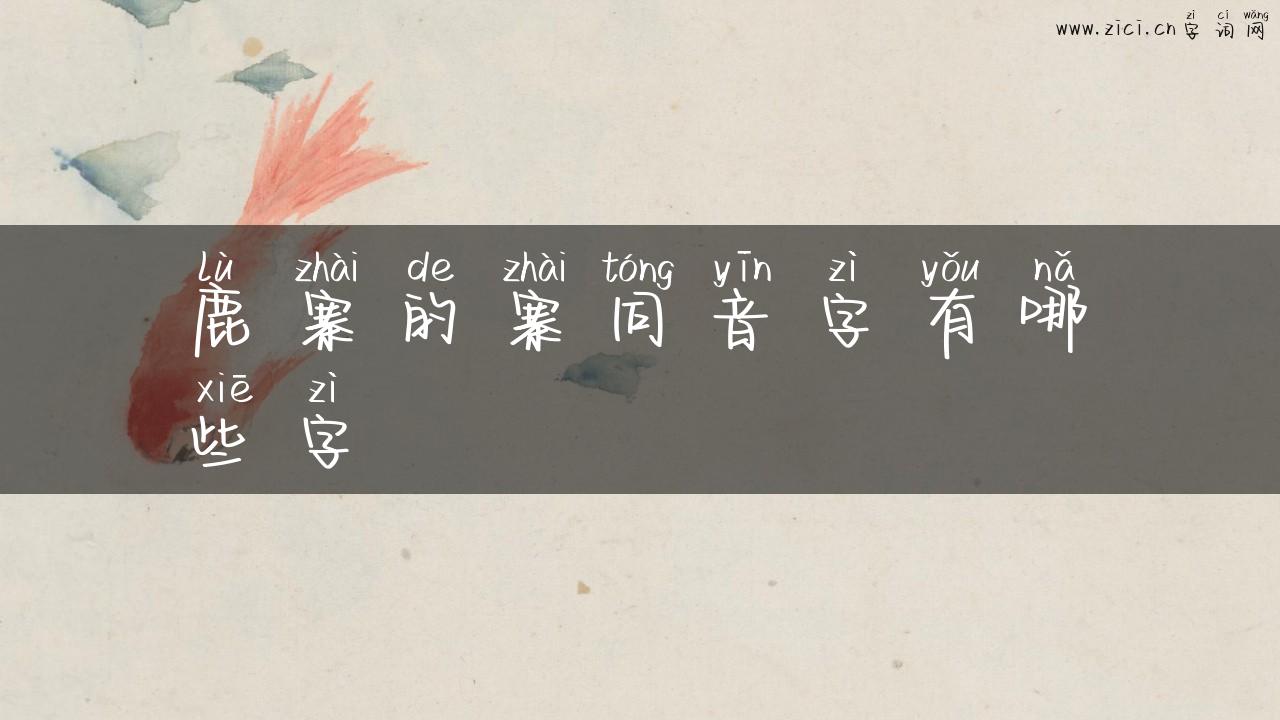 zì cí wǎng
www.zici.cn字词网
lù zhài de zhài tóng yīn zì yǒu nǎ
鹿寨的寨同音字有哪
xiē zì
些字